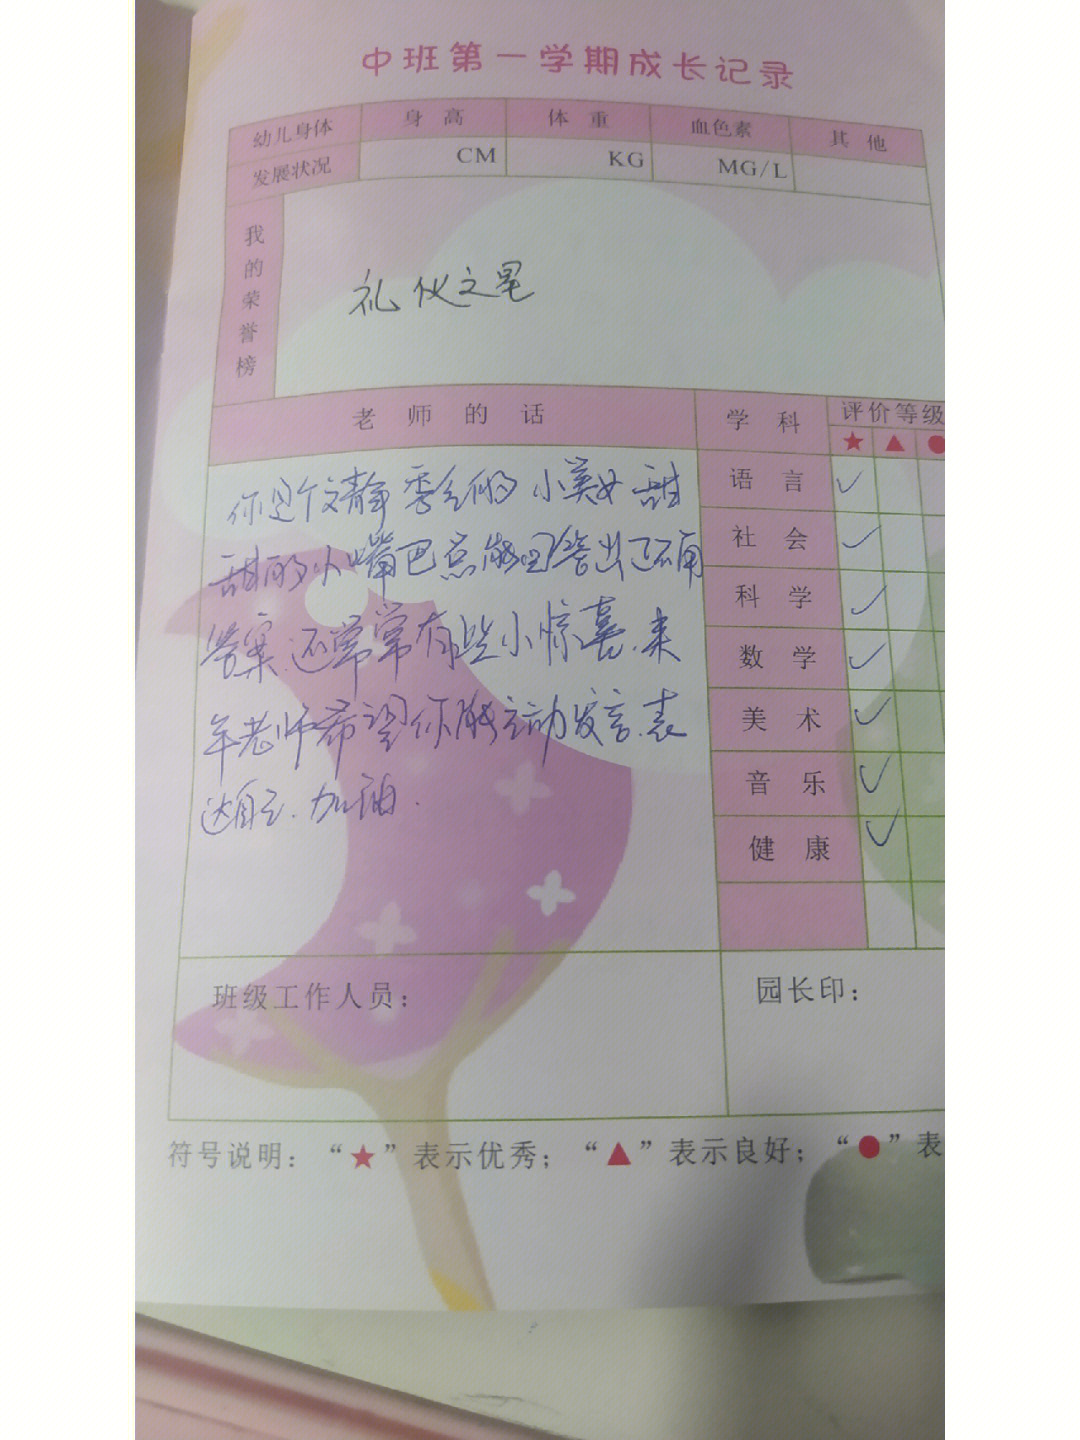 中班第一学期成长记录
幼儿身体 身高 体重 血色素 其他
发展状况 CM KG MG/L
我的荣誉榜
礼仪之星
老师的话 学科 评价等级
★ ▲ ●
你是个文静秀气的小美女甜
甜的小嘴巴总能回答出正确
答案.还常常有些小惊喜.来
年老师希望你能主动发言.表
达自己.加油.
语言 ✓
社会 ✓
科学 ✓
数学 ✓
美术 ✓
音乐 ✓
健康 ✓
班级工作人员： 园长印：
符号说明：“★”表示优秀；“▲”表示良好；“●”表